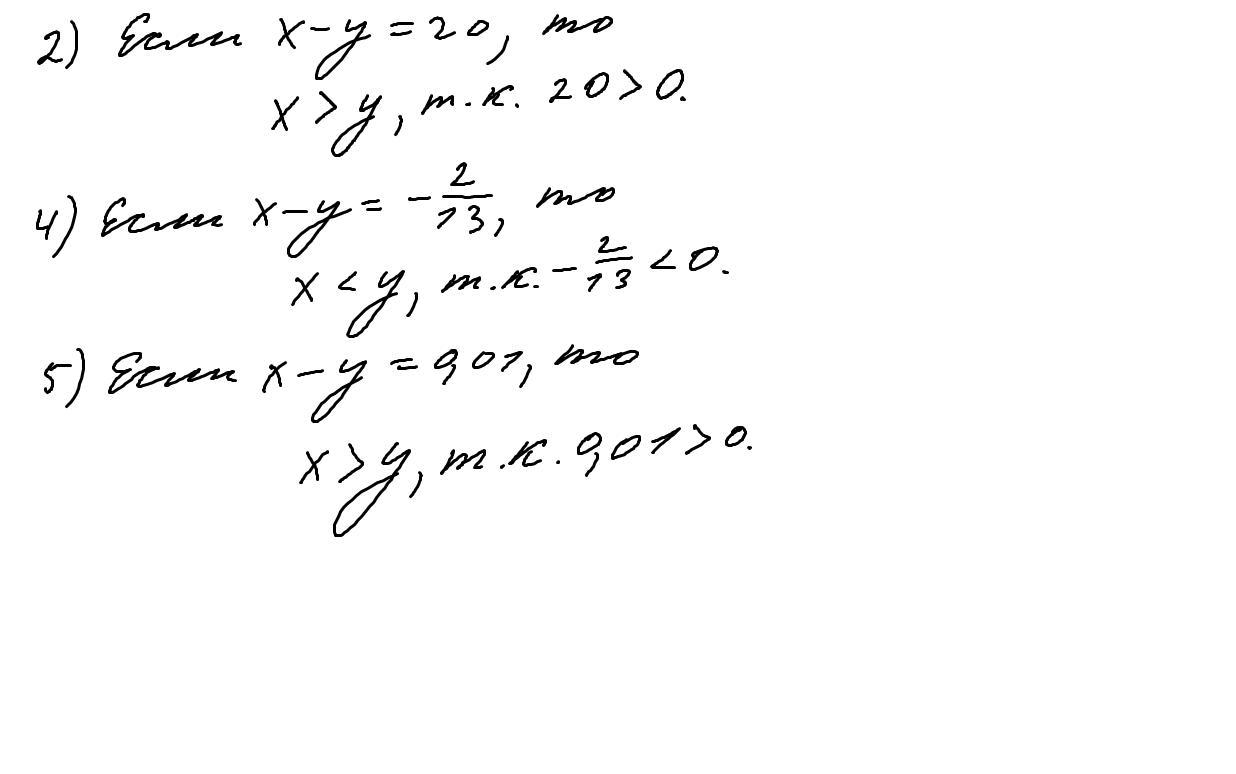 2) Если x-y=20, то
x>y, т.к. 20>0.
4) Если x-y= -2/13, то
x<y, т.к. -2/13<0.
5) Если x-y=0,01, то
x>y, т.к. 0,01>0.